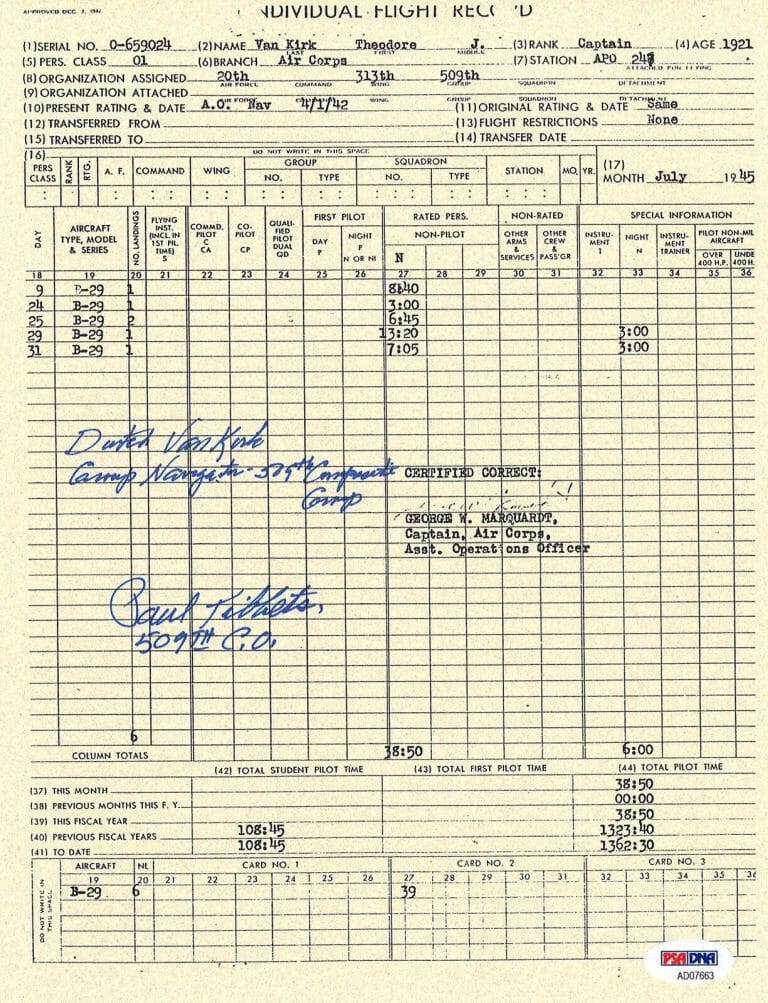 APPROVED DEC. 7, 1942
INDIVIDUAL FLIGHT RECORD
(1) SERIAL NO. O-659024 (2) NAME Van Kirk Theodore J. (3) RANK Captain (4) AGE 1921
LAST FIRST MIDDLE
(5) PERS. CLASS 01 (6) BRANCH Air Corps (7) STATION APO 247
(8) ORGANIZATION ASSIGNED 20th 313th 509th ATTACHED FOR FLYING
AIR FORCE COMMAND WING GROUP SQUADRON DETACHMENT
(9) ORGANIZATION ATTACHED
AIR FORCE COMMAND WING GROUP SQUADRON DETACHMENT
(10) PRESENT RATING & DATE A.O. Nav 4/1/42 (11) ORIGINAL RATING & DATE Same
(12) TRANSFERRED FROM (13) FLIGHT RESTRICTIONS None
(15) TRANSFERRED TO (14) TRANSFER DATE
(16) DO NOT WRITE IN THIS SPACE
PERS CLASS RANK RTG. A. F. COMMAND WING GROUP NO. TYPE SQUADRON NO. TYPE STATION MO. YR. (17) MONTH July 1945
DAY AIRCRAFT TYPE, MODEL & SERIES NO. LANDINGS FLYING INST. (INCL. IN 1ST PIL. TIME) S COMMD. PILOT C CA CO-PILOT CP QUALI-FIED PILOT DUAL QD FIRST PILOT DAY P NIGHT P N OR NI RATED PERS. NON-PILOT N NON-RATED OTHER ARMS & SERVICES OTHER CREW & PASS'GR SPECIAL INFORMATION INSTRU-MENT I NIGHT N INSTRU-MENT TRAINER PILOT NON-MIL AIRCRAFT OVER 400 H.P. UNDE 400 H.
18 19 20 21 22 23 24 25 26 27 28 29 30 31 32 33 34 35 36
9 B-29 1 8:40
24 B-29 1 3:00
25 B-29 2 6:45
29 B-29 1 13:20 3:00
31 B-29 1 7:05 3:00
Dutch VanKirk
Group Navigator - 509th Composite
Group
CERTIFIED CORRECT:
GEORGE W. MARQUARDT,
Captain, Air Corps,
Asst. Operations Officer
Paul Tibbets,
509TH C.O.
6
COLUMN TOTALS 38:50 6:00
(42) TOTAL STUDENT PILOT TIME (43) TOTAL FIRST PILOT TIME (44) TOTAL PILOT TIME
(37) THIS MONTH 38:50
(38) PREVIOUS MONTHS THIS F. Y. 00:00
(39) THIS FISCAL YEAR 38:50
(40) PREVIOUS FISCAL YEARS 108:45 1323:40
(41) TO DATE 108:45 1362:30
DO NOT WRITE IN THIS SPACE
AIRCRAFT NL CARD NO. 1 CARD NO. 2 CARD NO. 3
19 20 21 22 23 24 25 26 27 28 29 30 31 32 33 34 35 36
B-29 6 39
PSA DNA
AD07663